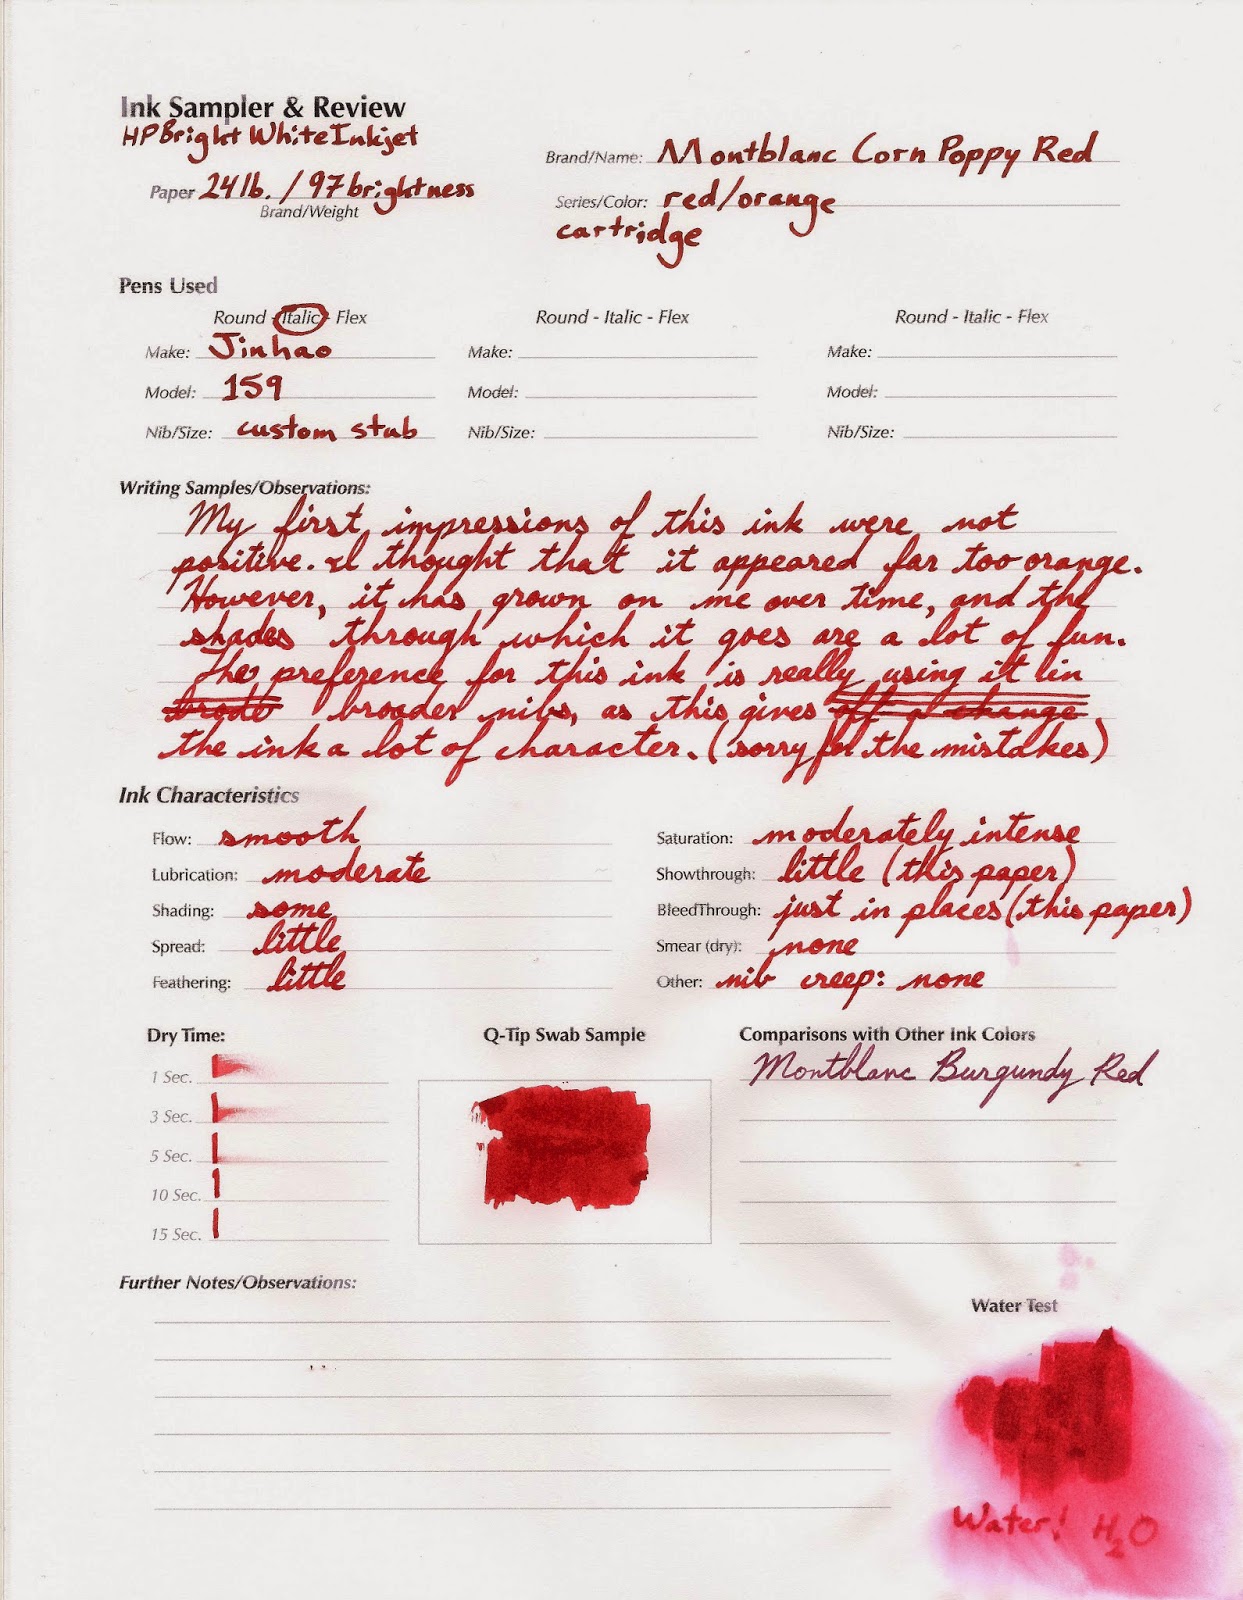 Ink Sampler & Review
HP Bright White Inkjet
Brand/Name: Montblanc Corn Poppy Red
Paper 24 lb. / 97 brightness
Brand/Weight
Series/Color: red/orange
cartridge
Pens Used
Round - Italic - Flex Round - Italic - Flex Round - Italic - Flex
Make: Jinhao Make: Make:
Model: 159 Model: Model:
Nib/Size: custom stub Nib/Size: Nib/Size:
Writing Samples/Observations:
My first impressions of this ink were not
positive. I thought that it appeared far too orange.
However, it has grown on me over time, and the
shades through which it goes are a lot of fun.
The preference for this ink is really using it in
brode broader nibs, as this gives off a change
the ink a lot of character. (sorry for the mistakes)
Ink Characteristics
Flow: smooth Saturation: moderately intense
Lubrication: moderate Showthrough: little (this paper)
Shading: some BleedThrough: just in places (this paper)
Spread: little Smear (dry): none
Feathering: little Other: nib creep: none
Dry Time: Q-Tip Swab Sample Comparisons with Other Ink Colors
1 Sec. Montblanc Burgundy Red
3 Sec.
5 Sec.
10 Sec.
15 Sec.
Further Notes/Observations:
Water Test
Water! H2O